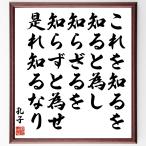 これを知るを
知ると為し
知らざるを
知らずと為せ
是れ知るなり
孔子